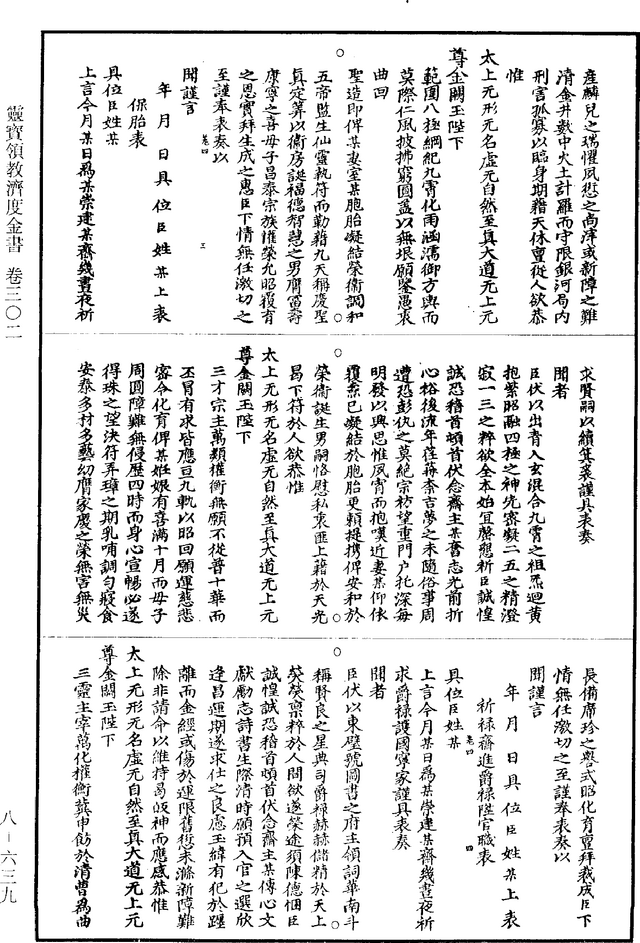 產麟兒之瑞懼夙愆之尚滓或新障之難
清金井數中火土計羅而守限銀河局內
刑害孤寡以臨身期藉天休亶從人欲恭
惟
太上无形无名虛无自然至真大道无上元
尊金闕玉陛下
範圍八極綱紀九霄化雨涵濡御方輿而
莫際仁風披拂窮圓蓋以無垠願鑒愚衷
曲回
聖造即俾某妻室某胞胎凝結榮衞調和
五帝監生仙靈執符而勤籍九天稱慶聖
真定筭以衞房誕福德智慧之男膺富壽
康寧之喜母子昌泰宗族懽榮允昭覆育
之恩實拜生成之惠臣下情無任激切之
至謹奉表奏以
聞謹言
年 月 日具 位 臣 姓 某 上 表
保胎表
具位臣姓某
上言今月某日為某崇建某齋幾晝夜祈
求賢嗣以續箕裘謹具表奏
聞者
臣伏以出青入玄混合九霄之祖炁迴黃
抱紫昭融四極之神先密凝二五之精澄
寂一三之粹欲全本始宜罄懇祈臣誠惶
誠恐稽首頓首伏念齋主某奮志光前折
心裕後流年荏苒柰吉夢之未隨俗事周
遭恐彭仇之莫絕宗枋望重門户托深每
明發以興思惟夙宵而抱嘆近妻某仰依
覆燾已凝結於胞胎更賴提携俾安和於
榮衞誕生男嗣恪慰私衷匪上藉於天光
曷下符於人欲恭惟
太上无形无名虛无自然至真大道无上元
尊金闕玉陛下
三才宗主萬類權衡無願不從普十華而
丕冐有求皆應亘九軌以昭回願運慈悲
密令化育俾某姙娠有喜滿十月而母子
周圓障難無侵歷四時而身心宣暢必遂
得珠之望決符弄璋之期乳哺調勻寢食
安泰多材多藝幼膺家慶之榮無害無災
長備席珍之譽式昭化育重拜裁成臣下
情無任激切之至謹奉表奏以
聞謹言
年 月 日具 位 臣 姓 某 上 表
祈祿齋進爵祿陞官職表
具位臣姓某
上言今月某日為某崇建某齋幾晝夜祈
求爵祿護國寧家謹具表奏
聞者
臣伏以東壁號圖書之府主領詞華南斗
稱賢良之星典司爵祿赫赫儲精於天上
熒熒稟粹於人間欲遂榮途須陳德佃臣
誠惶誠恐稽首頓首伏念齋主某傳心文
獻勵志詩書生際清時願預入官之選欣
逢昌運期遂求仕之良慮玉緯有犯於躔
離而金經或傷於運限舊愆未滌新障難
除非請命以維持曷皈神而應感恭惟
太上无形无名虛无自然至真大道无上元
尊金闕玉陛下
三靈主宰萬化權衡冀申飭於清曹為曲
卷四 三
卷四 四
靈寶領教濟度金書 卷三〇二
八－六三九